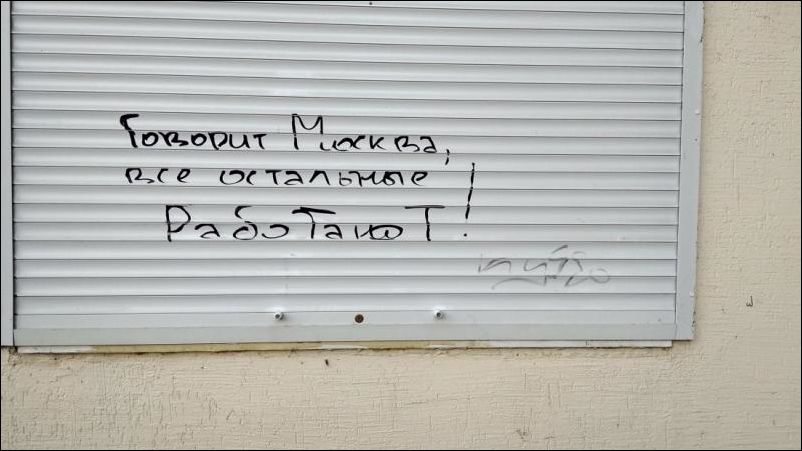 Говорит Москва,
все остальные
Работают!